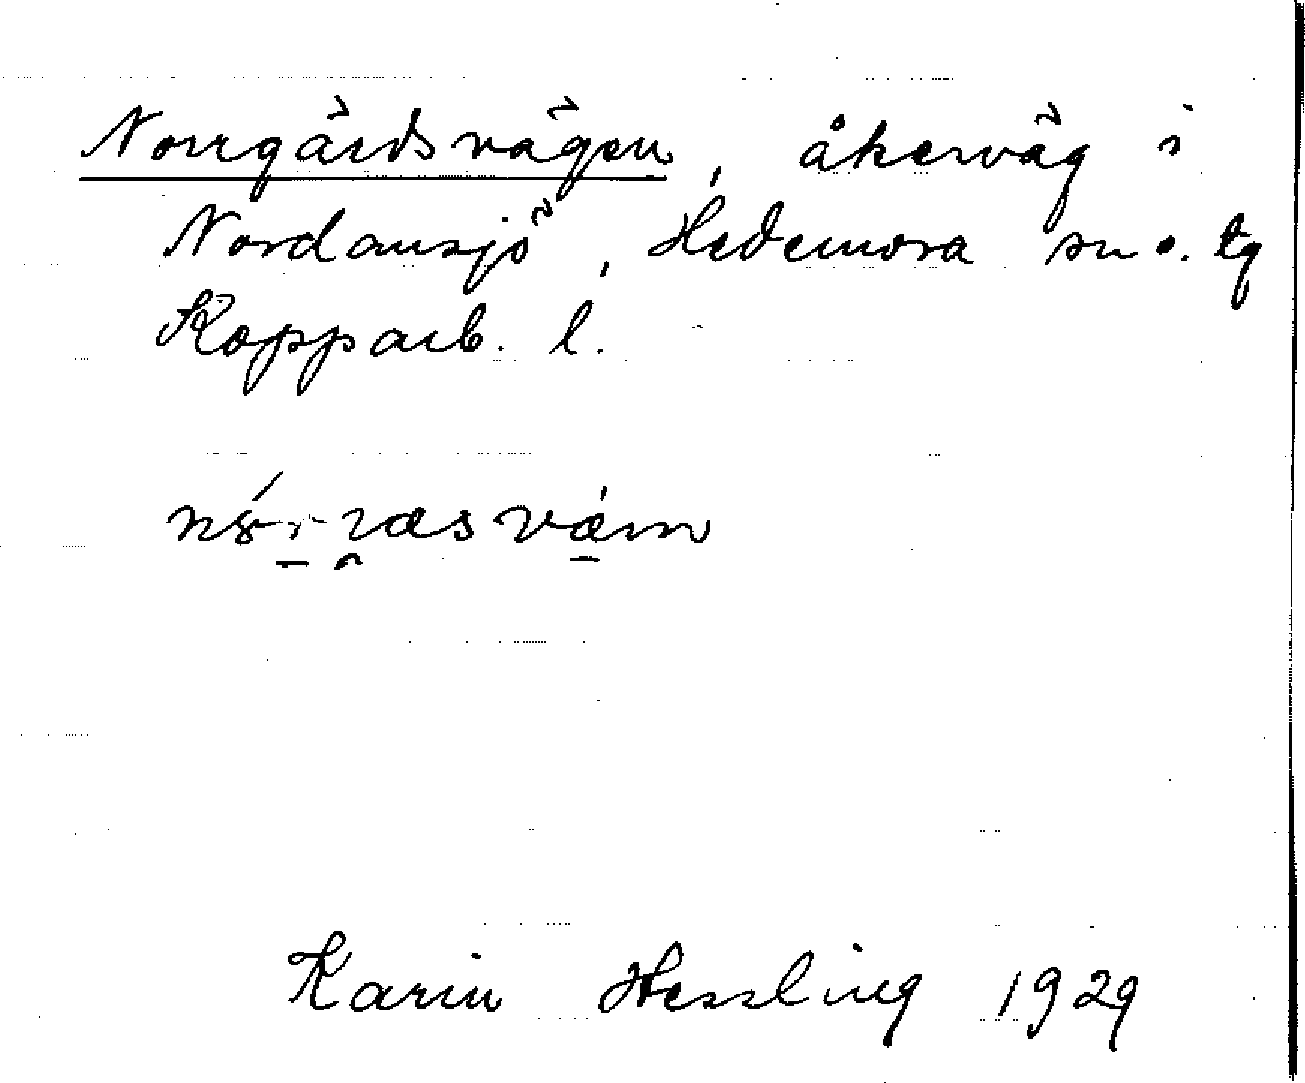 Norrgärdsvägen, åkerväg i
Nordansjö, Hedemora sn o. tg
Kopparb. l.
Karin Hessling 1929